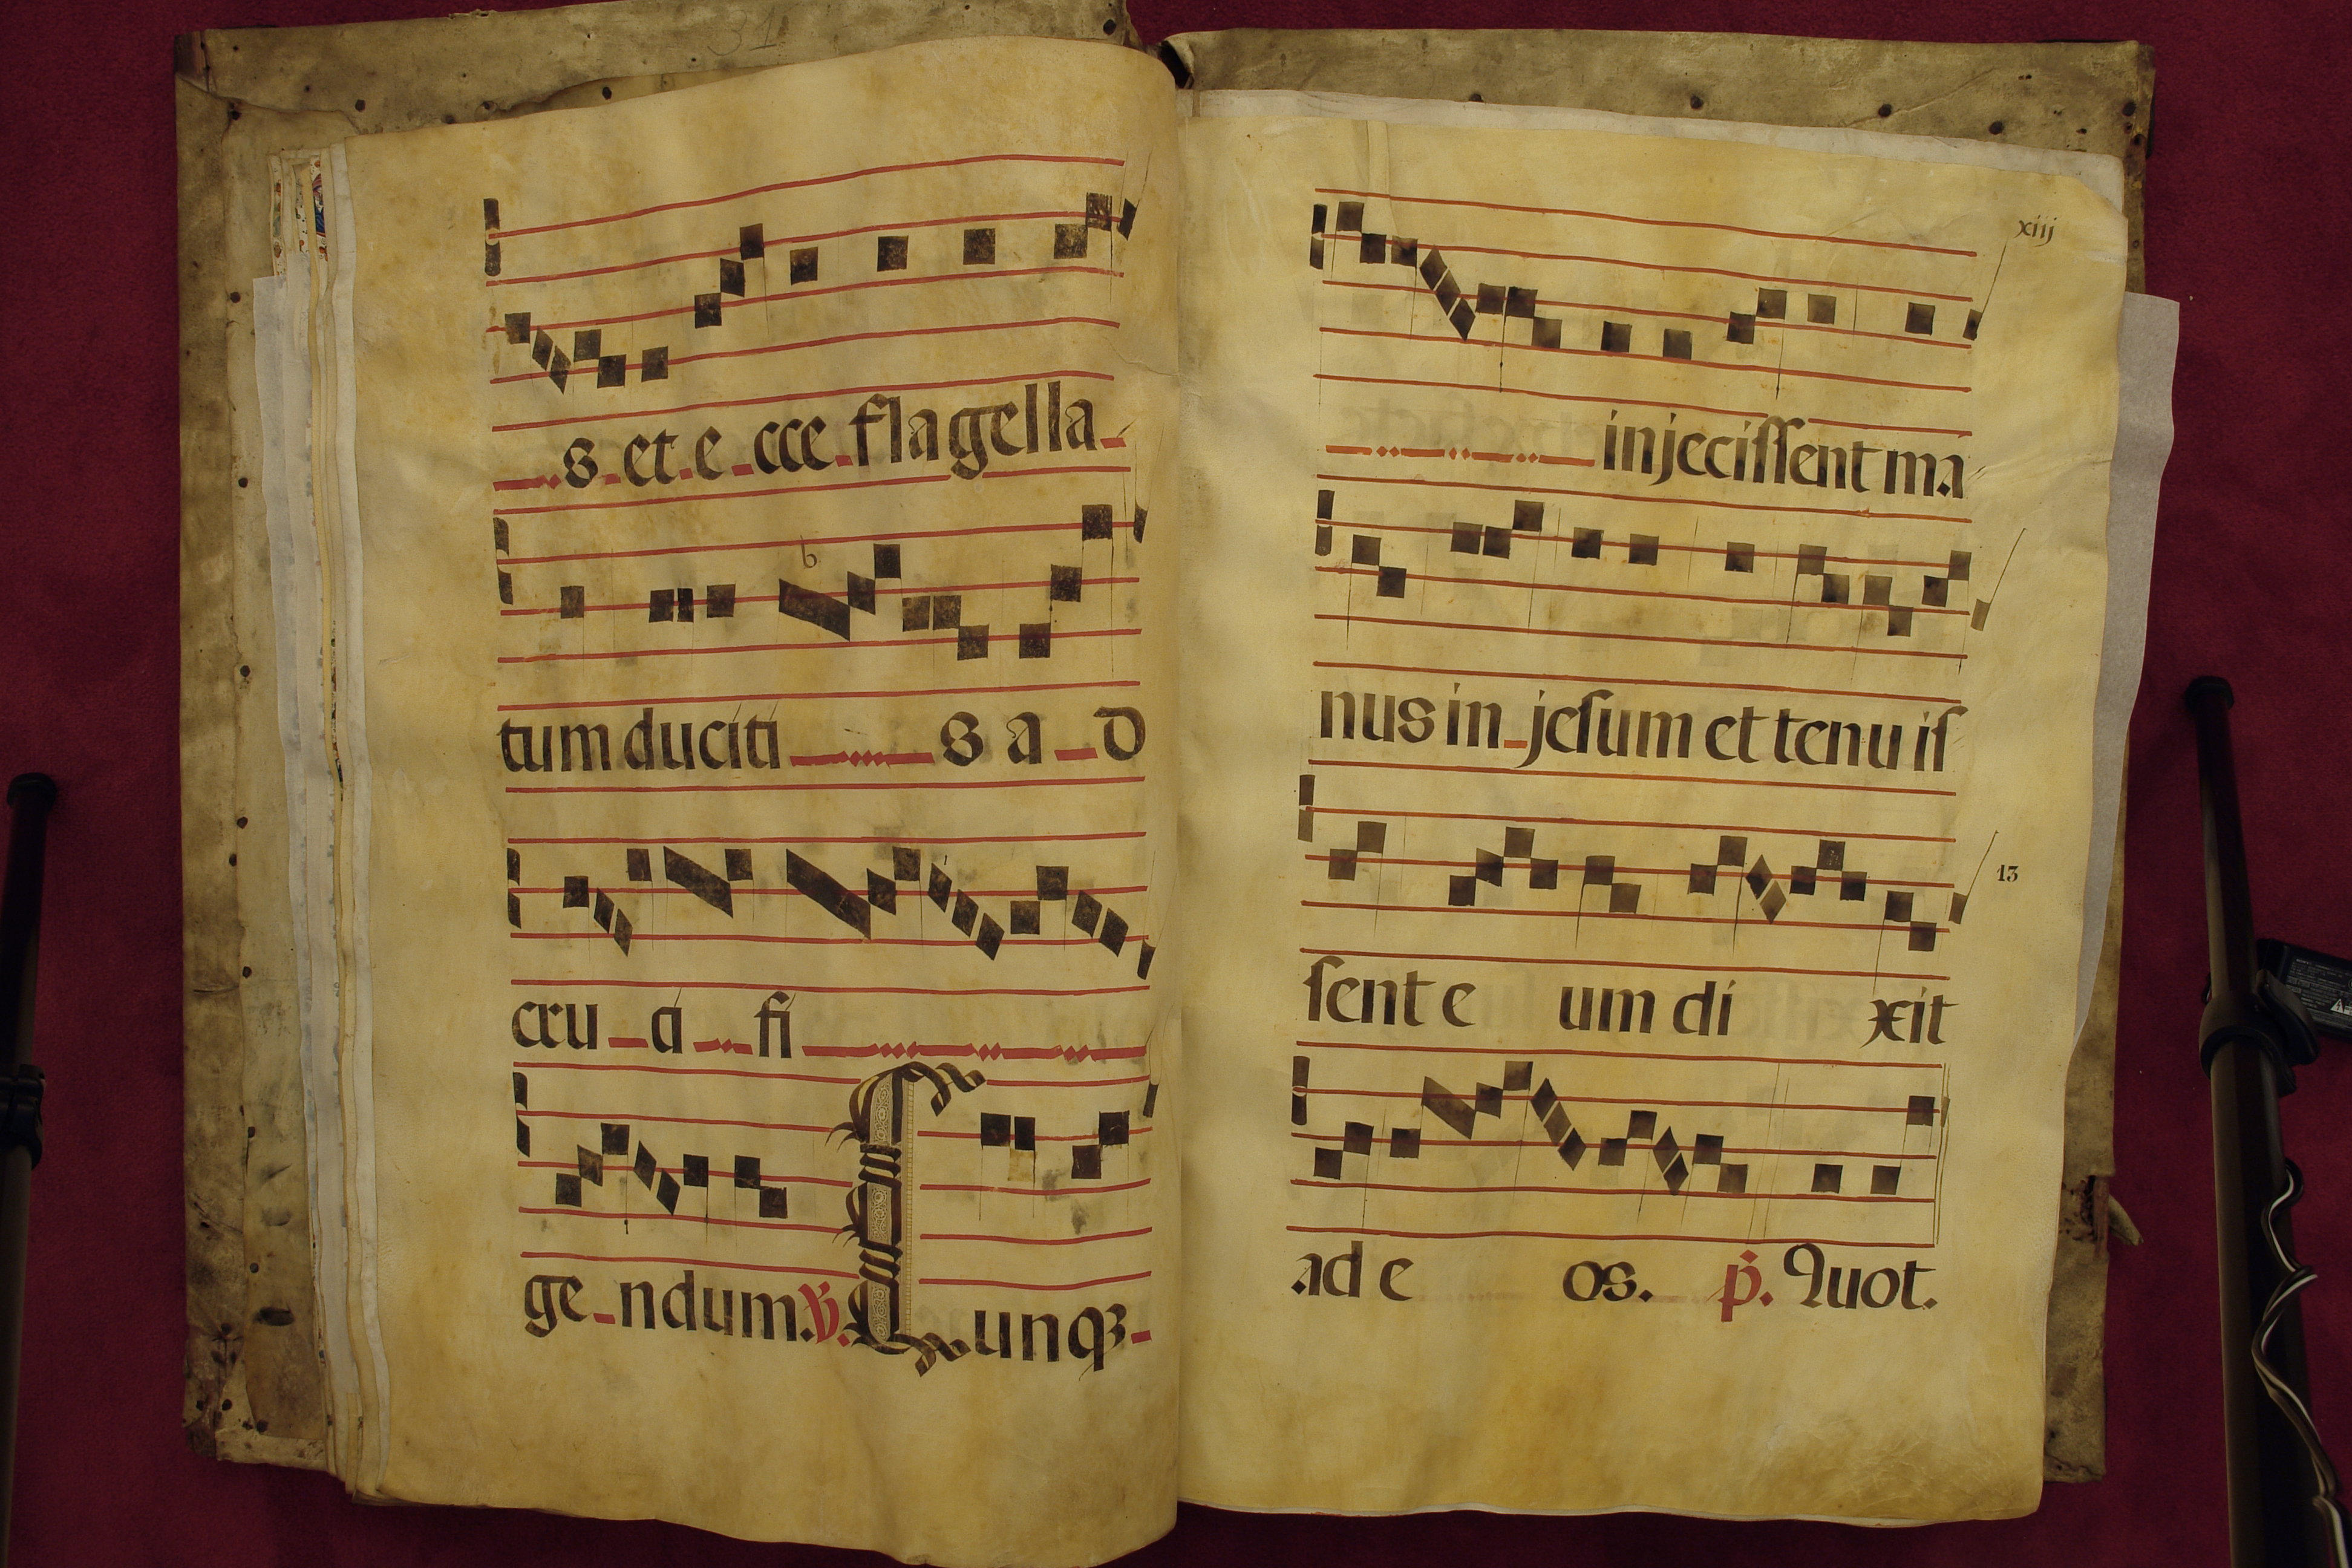 31
s. et e cce flagella
tum duciti s a d
cru ci fi
ge ndum. ℣. Cunqꝫ
xiij
injecissent ma
nus in jesum et tenu is
13
sent e um di xit
ad e os. p̄. Quot.